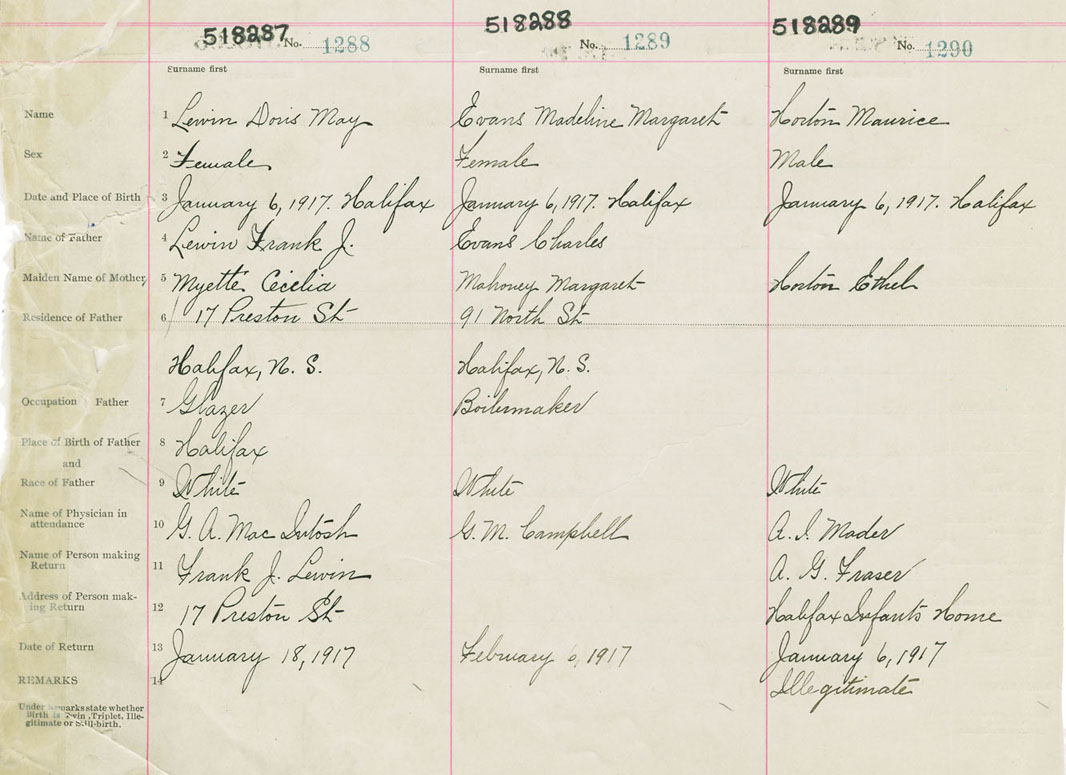 518287 No. 1288 518288 No. 1289 518289 No. 1290
Surname first Surname first Surname first
Name 1 Lewin Doris May Evans Madeline Margaret Horton Maurice
Sex 2 Female Female Male
Date and Place of Birth 3 January 6, 1917. Halifax January 6, 1917. Halifax January 6, 1917. Halifax
Name of Father 4 Lewin Frank J. Evans Charles
Maiden Name of Mother 5 Myette Cecilia Mahoney Margaret Horton Ethel
Residence of Father 6 17 Preston St 91 North St
Halifax, N. S. Halifax, N. S.
Occupation Father 7 Glazer Boilermaker
Place of Birth of Father 8 Halifax
and
Race of Father 9 White White White
Name of Physician in
attendance 10 G. A. Mac Intosh G. M. Campbell A. I. Mader
Name of Person making
Return 11 Frank J. Lewin A. G. Fraser
Address of Person mak-
ing Return 12 17 Preston St Halifax Infants Home
Date of Return 13 January 18, 1917 February 6, 1917 January 6, 1917
REMARKS 14 Illegitimate
Under remarks state whether
Birth is Twin, Triplet, Ille-
gitimate or Still-birth.